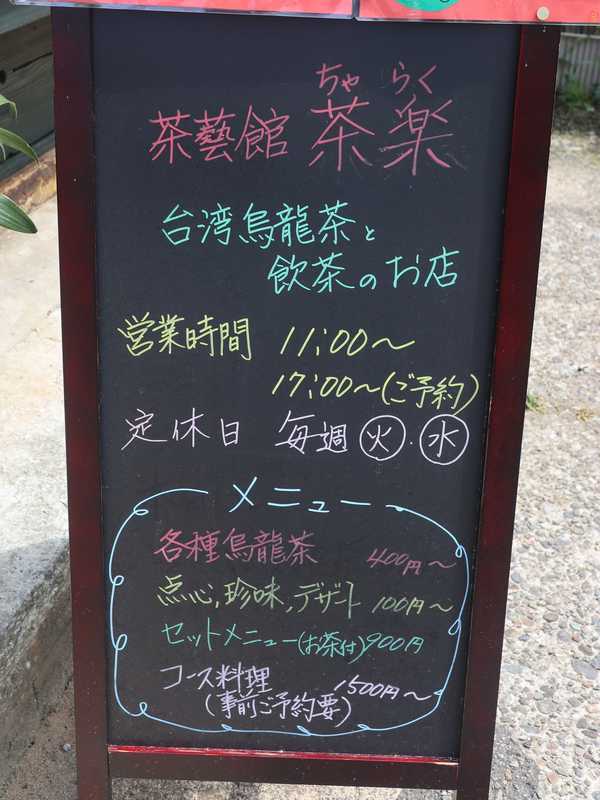 ちゃ らく
茶藝館 茶楽
台湾烏龍茶と
飲茶のお店
営業時間 11:00～
17:00～(ご予約)
定休日 毎週 火・水
メニュー
各種烏龍茶 400円～
点心,珍味,デザート 100円～
セットメニュー(お茶付)900円
コース料理 1500円～
(事前ご予約要)